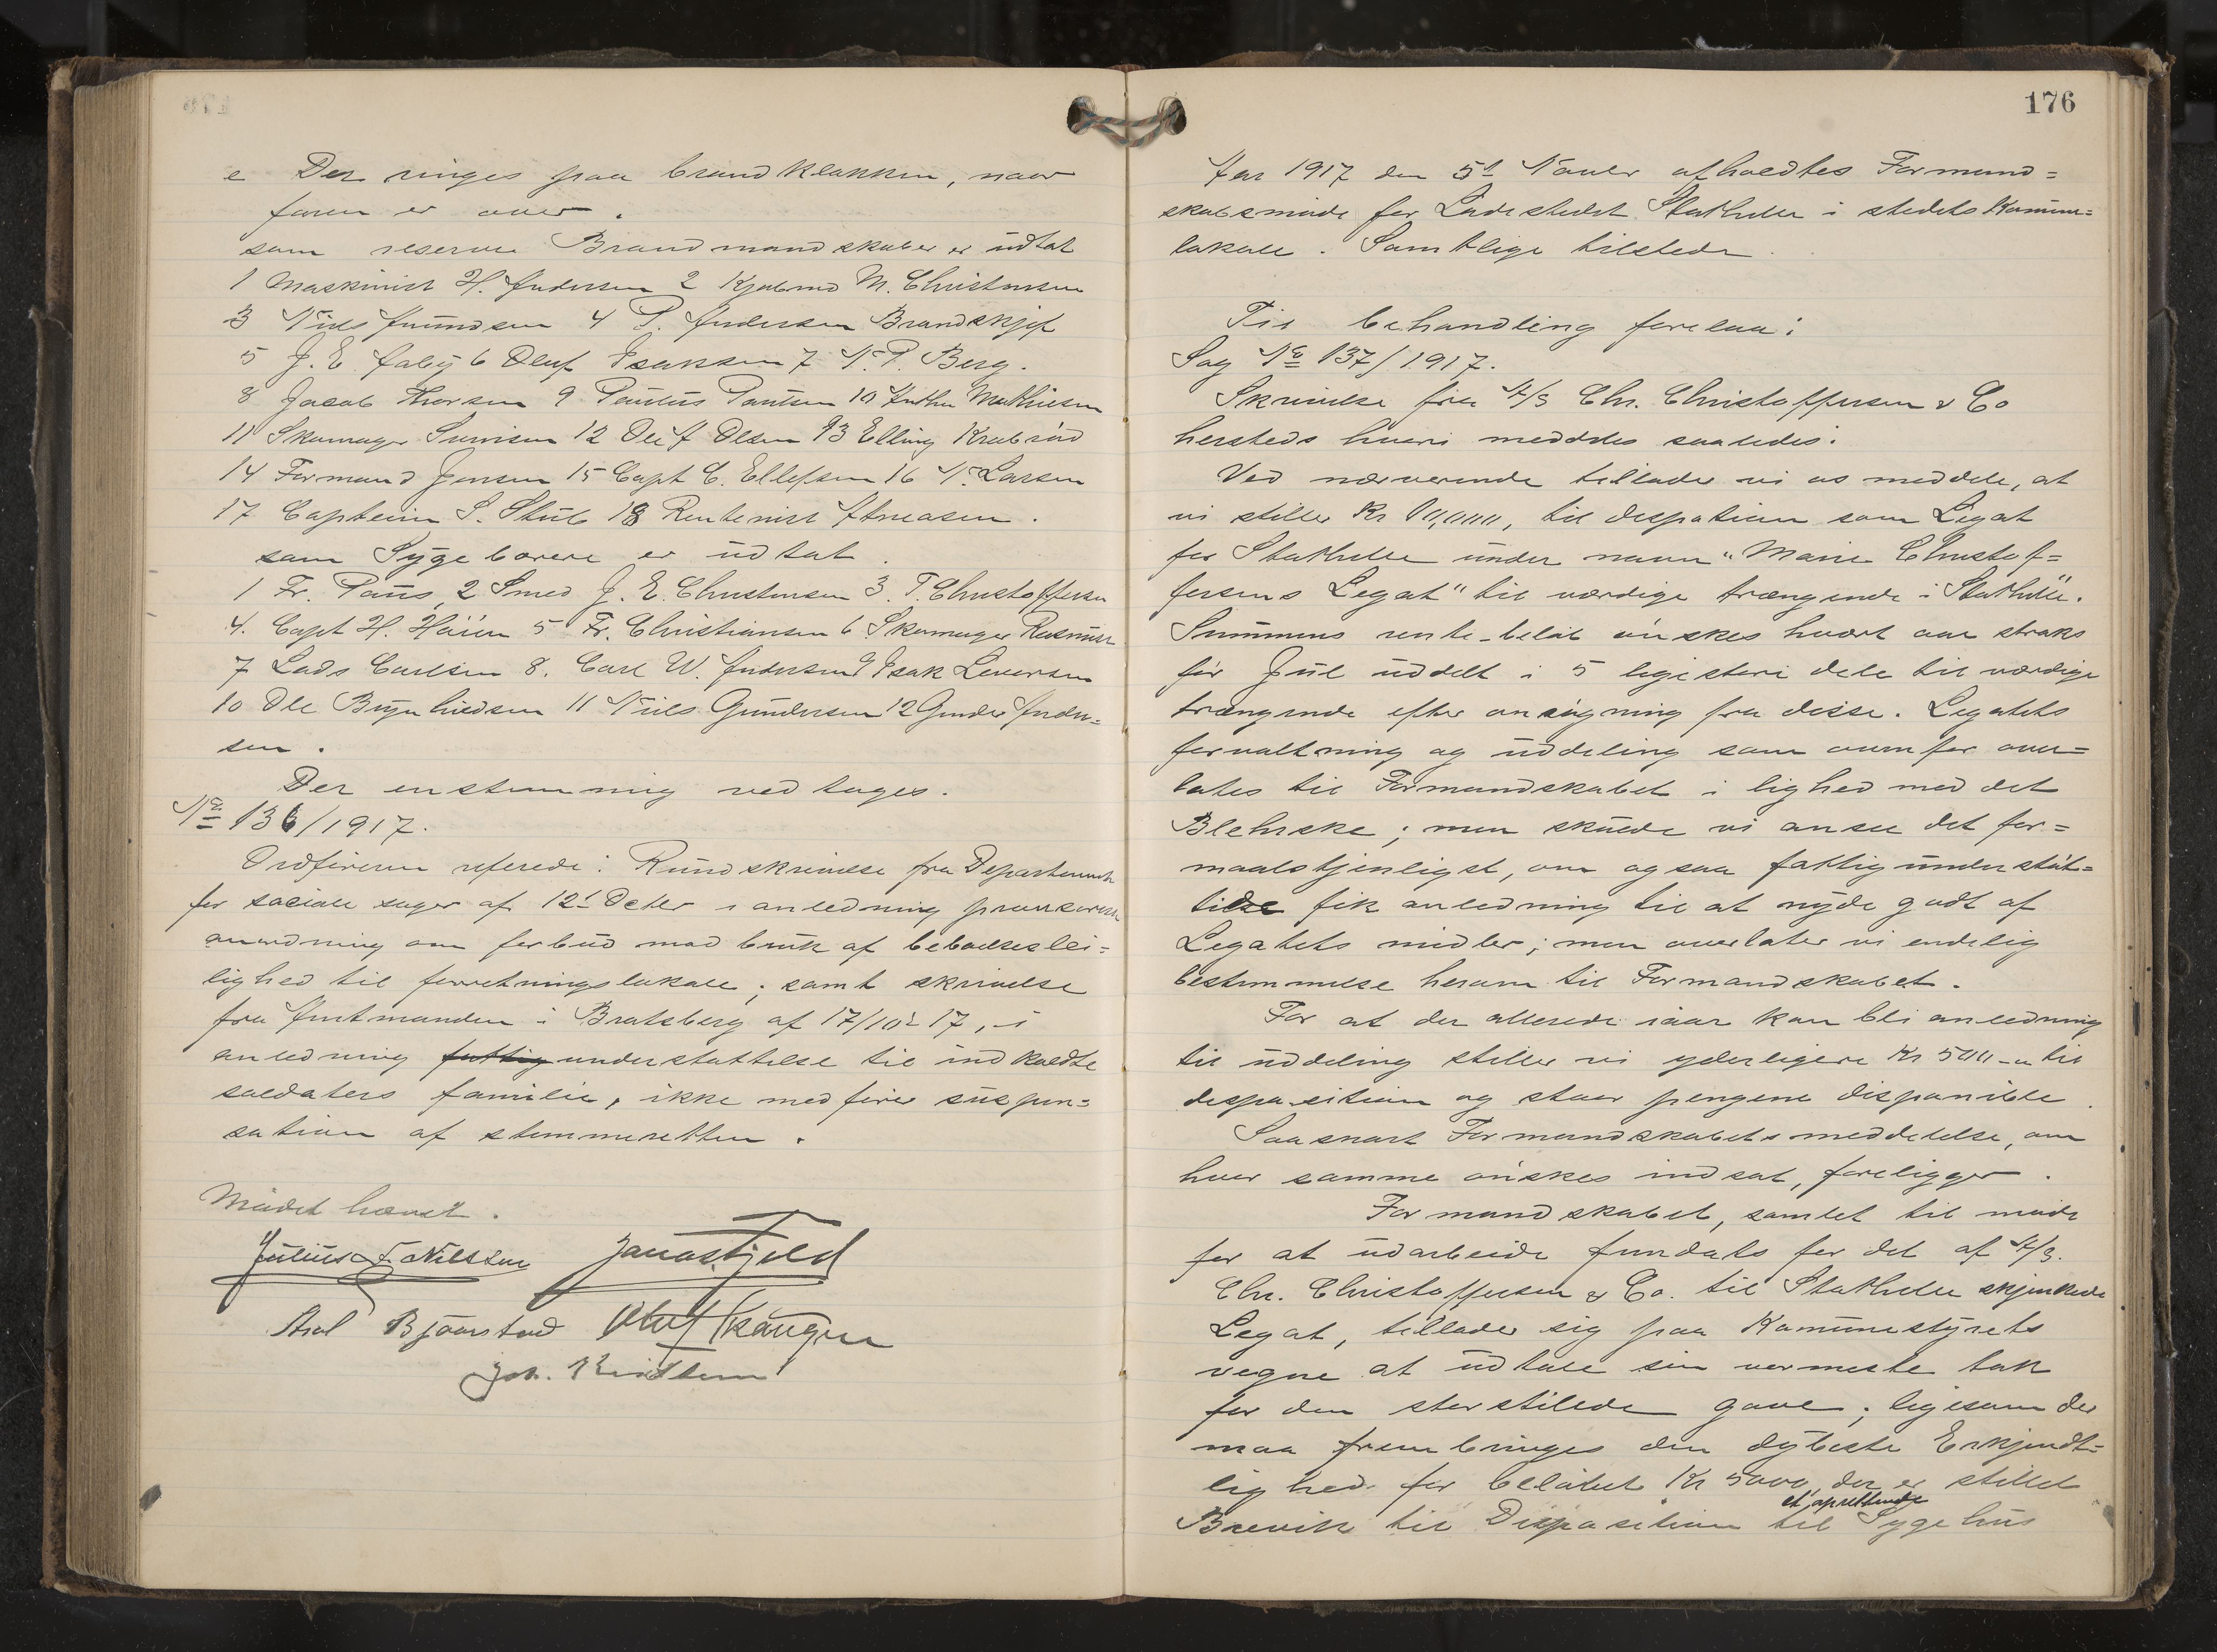 e Der ringes paa brandklokken, naar
faren er over.
som reserve Brandmandskaber er udtat
1 Maskinist H. Andersen 2 Kjøbmd M. Christensen
3 Niels Amundsen 4 P. Andersen Brandskjef
5 J. E. Oluf Isaksen 7 N. P. Berg.
8 Jacob Thorsen 9 Paulus Paulsen 10 Anthon Mathiesen
11 Skomager 12 Olaf Olsen 13 Elling Krabrød
14 Formand Jensen 15 Capt C. Ellefsen 16 N. Larsen
17 Captein S. Stub 18 Rentenist
som Sygebærere er udtat
1 Fr. Paus, 2 Smed J. E. Christensen 3. T. Christoffersen
4. Capt H. 5 Fr. Christiansen 6 Skomager
7 Lads Carlsen 8. Carl W. Andersen 9 Isak Leversen
10 Ole Brynhildsen 11 Niels Gundersen 12 Gunder Ander=
sen.
Der enstemmig vedtages.
No 136/1917.
Ordføreren referede: Rundskrivelse fra Departementet
for sociale sager af 12t Octbr i anledning provisorisk
anordning om forbud mod bruk af beboelseslei=
lighed til forretningslokale; samt skrivelse
fra Amtmanden i Bratsberg af 17/10-17, i
anledning fattig understøttelse til indkaldte
soldaters familie, ikke medfører suspen=
sation af stemmeretten.
Mødet hævet.
Julius F. Nilsson Jonas Fjeld
Axel Bjørnstad Oluf Skaugen
Joh.
176
Aar 1917 den 5t Novbr afholdtes Formand=
skabsmøde for Ladestedet Stathelle i stedets Komune=
lokale. Samtlige tilstede.
Til behandling forelaa:
Sag No 137/1917.
Skrivelse fra A/S Chr. Christoffersen & Co
hersteds hvori meddeles saaledes:
Ved nærværende tillader vi os meddele, at
vi stiller Kr 10,000, til dispotion som Legat
for Stathelle under navn "Marie Christof=
fersens Legat" til værdige trængende i Stathelle".
Summens rente-beløb ønskes hvert aar straks
før Jul uddelt i 5 lige store dele til værdige
trængende efter ansøgning fra disse. Legatets
forvaltning og uddeling som ovenfor over=
lates til Formandskabet i lighed med det
Blehrske; men skulde vi ansee det for=
maalstjenligst, om ogsaa fattigunderstøt=
tidse fik anledning til at nyde godt af
Legatets midler; men overlater vi endelig
bestemmelse herom til Formandskabet.
For at der allerede iaar kan bli anledning
til uddeling stiller vi yderligere Kr 500-n til
desposition og staar pengene disponible.
Saasnart Formandskabets meddelelse, om
hvor samme ønskes indsat, foreligger.
Formandskabet, samlet til møde
for at udarbeide fundats for det af A/S.
Chr. Christoffersen & Co. til Stathelle skjenkede
Legat, tillader sig paa Komunestyrets
vegne at udtale sin varmeste tak
for den storstilede gave; ligesom der
maa frembringes den dybeste Erkjendt=
lighed for beløbet Kr 5000, der er stillet
Brevik til Disposition til et oprettende Sygehus